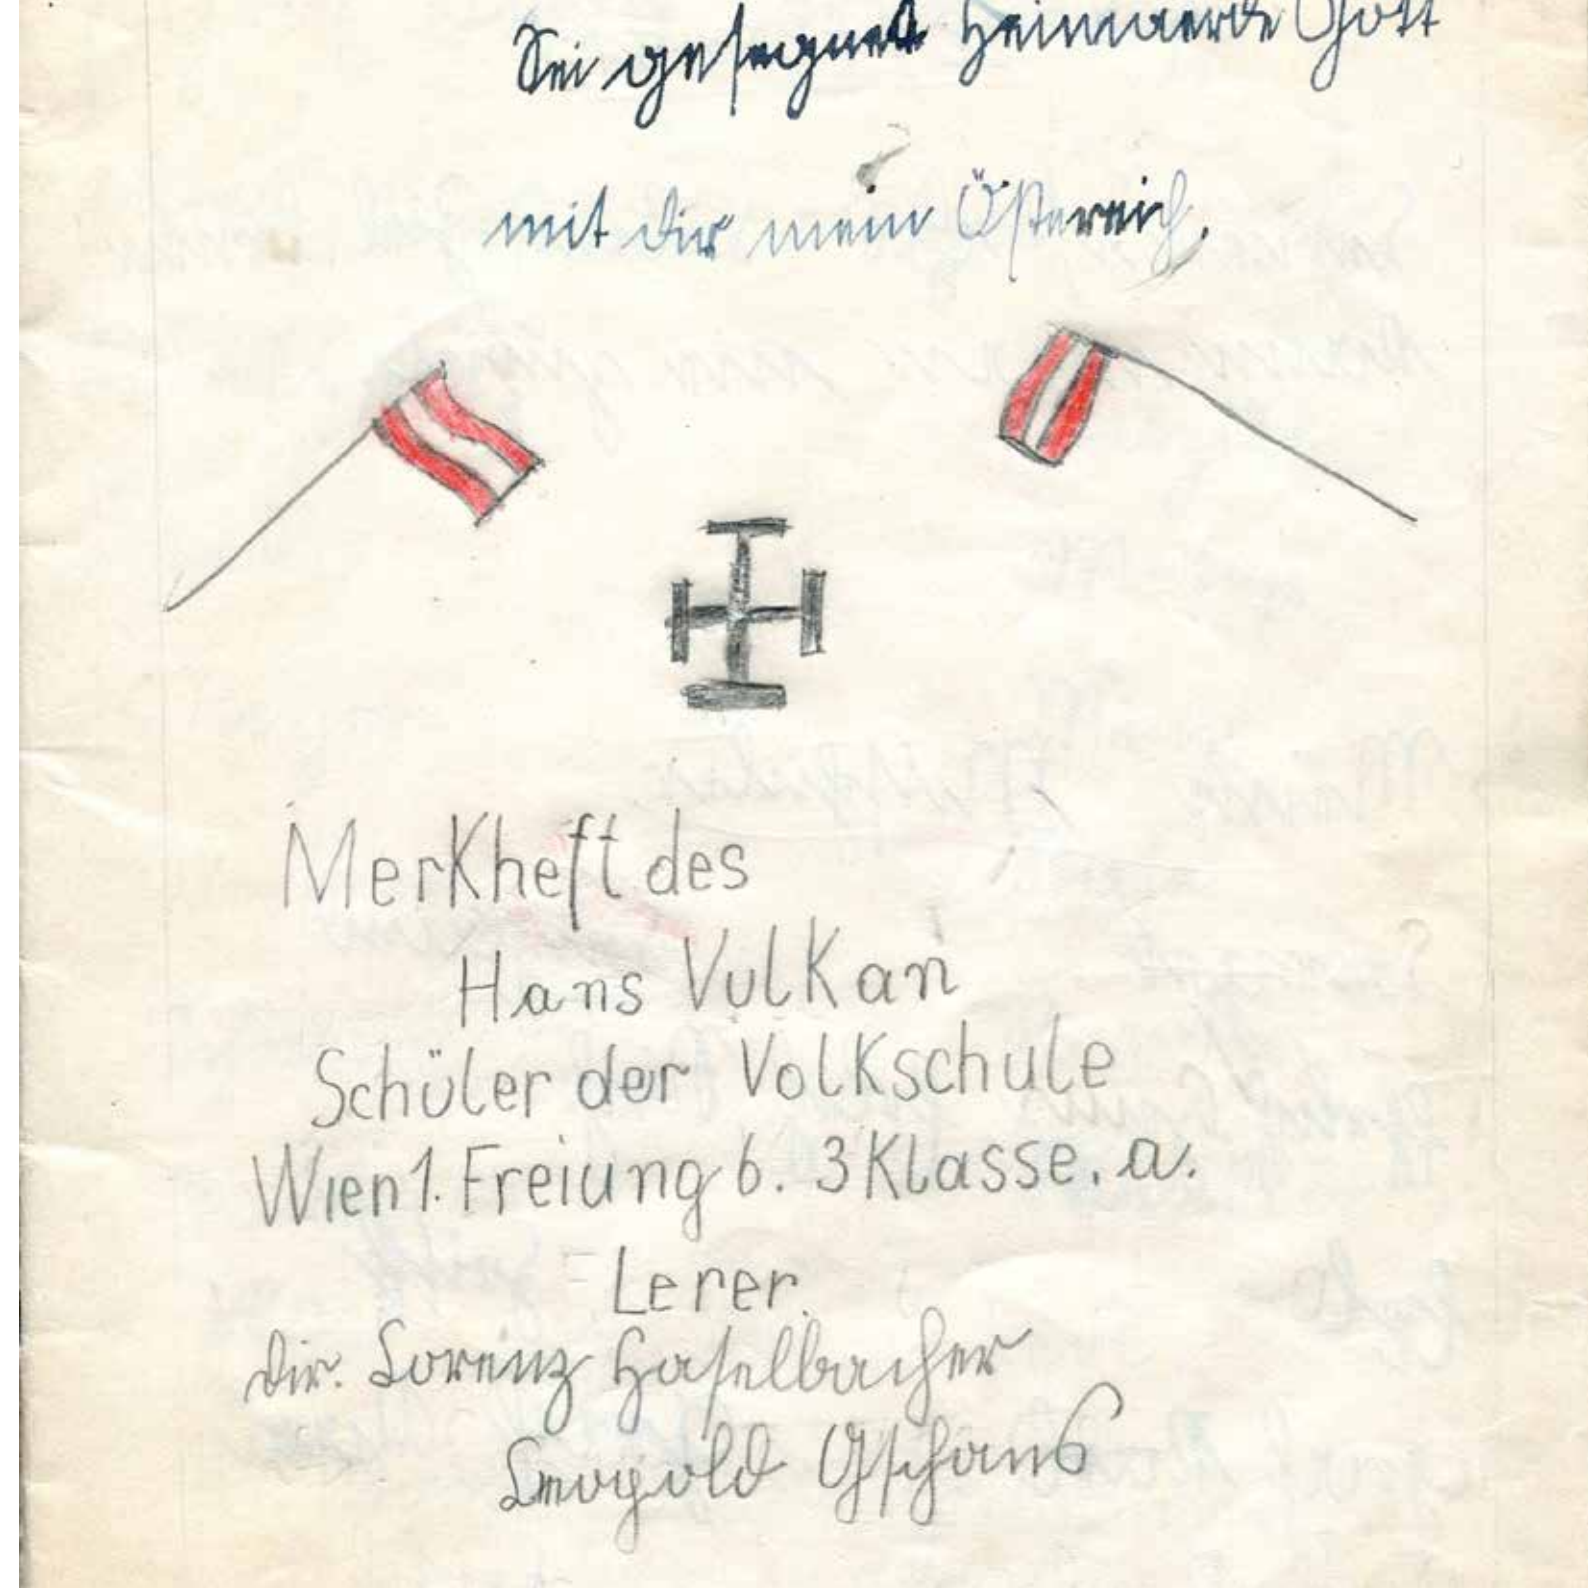 Sei gesegnet Heimaerde Gott
mit dir mein Österreich.
Merkheft des
Hans Vulkan
Schüler der Volkschule
Wien 1. Freiung 6. 3 Klasse. a.
Lerer.
Dir. Lorenz Haselbacher
Leopold Gschans